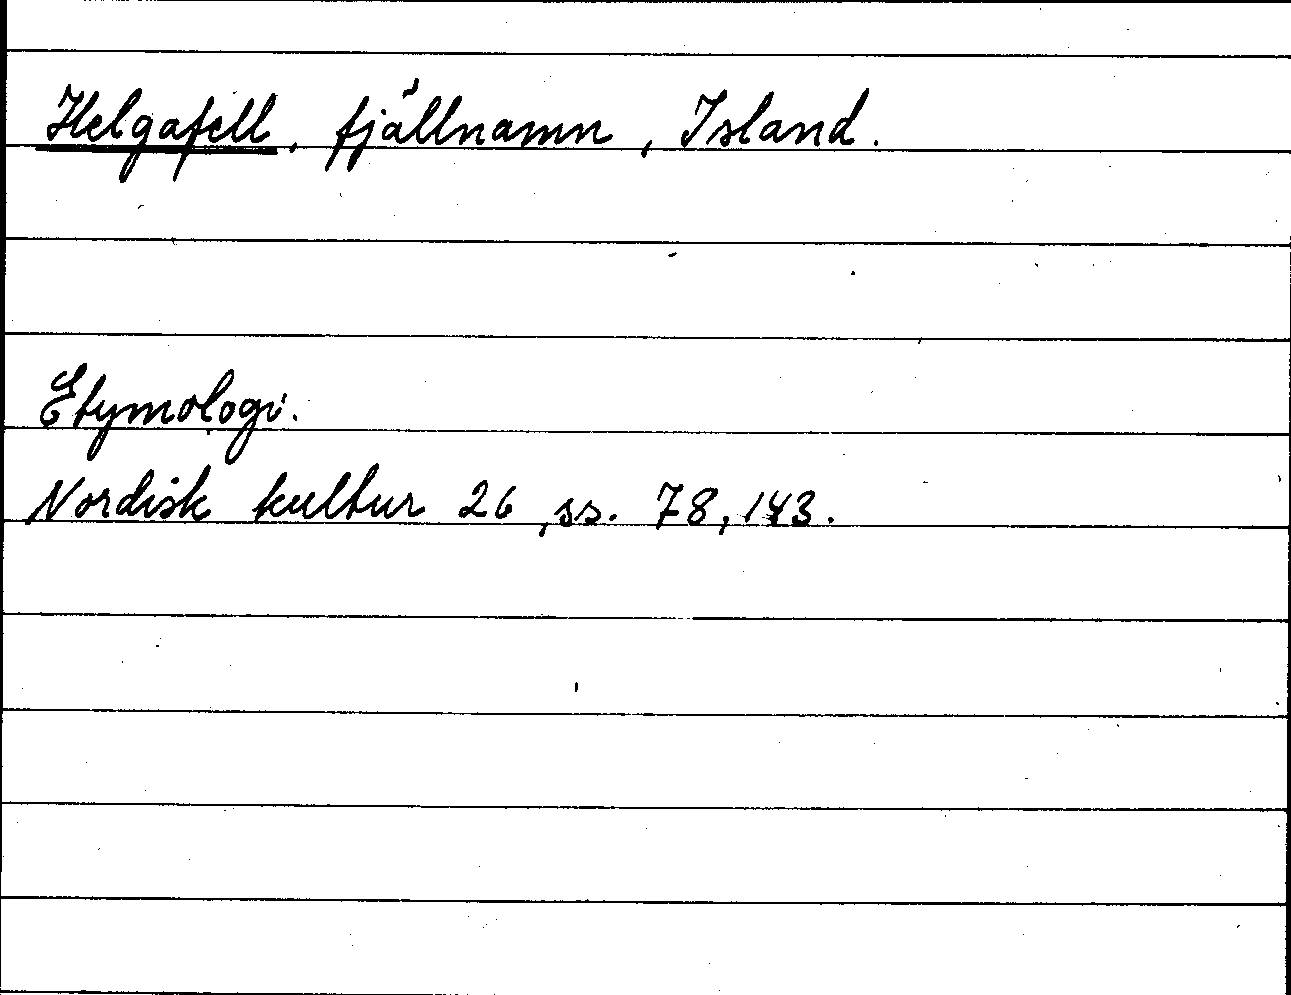 Helgafell, fjällnamn, Island.
Etymologi.
Nordisk kultur 26, ss. 78, 143.